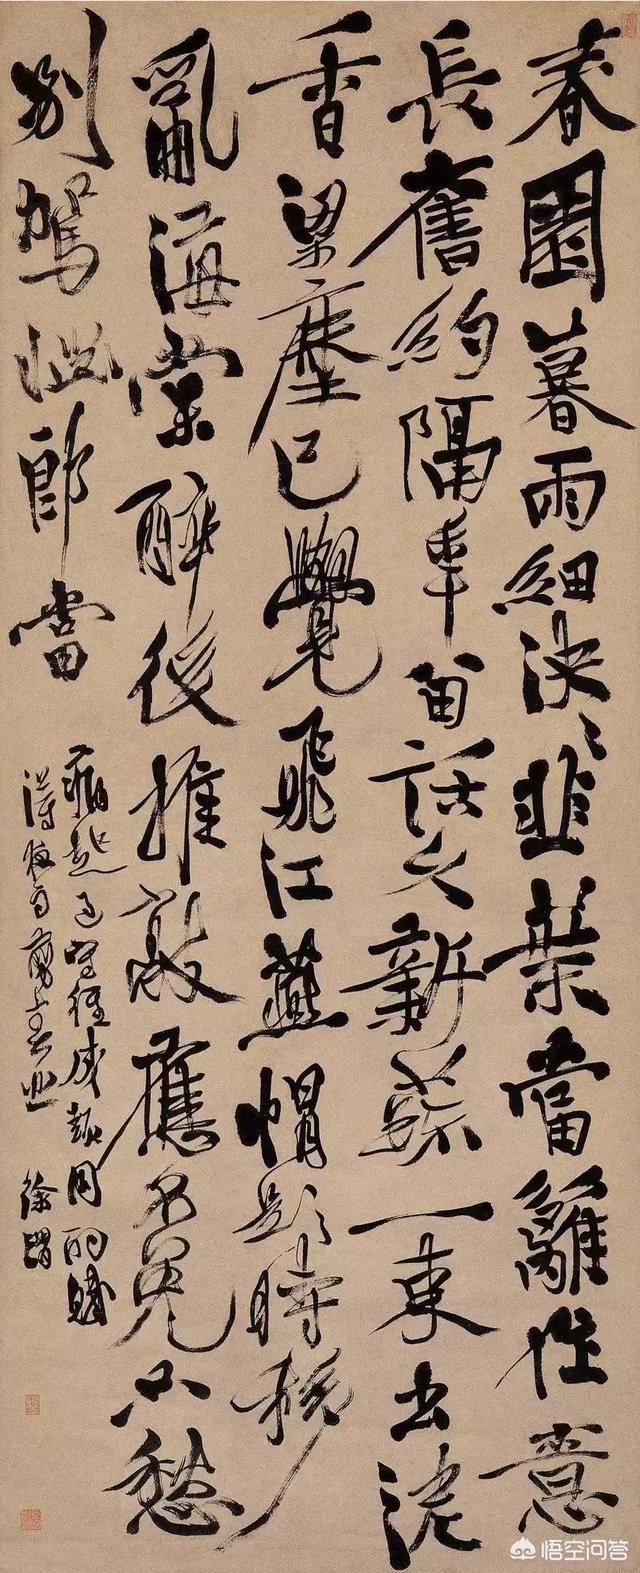 春園暮雨細泱泱韭葉當籬作意
長舊約隔年留話久新蔬一束出泥
香梁塵已覺飛江燕帽影時移
亂海棠醉後推敲應不免不愁
別駕惱郎當
病起過
徐渭
悟空问答